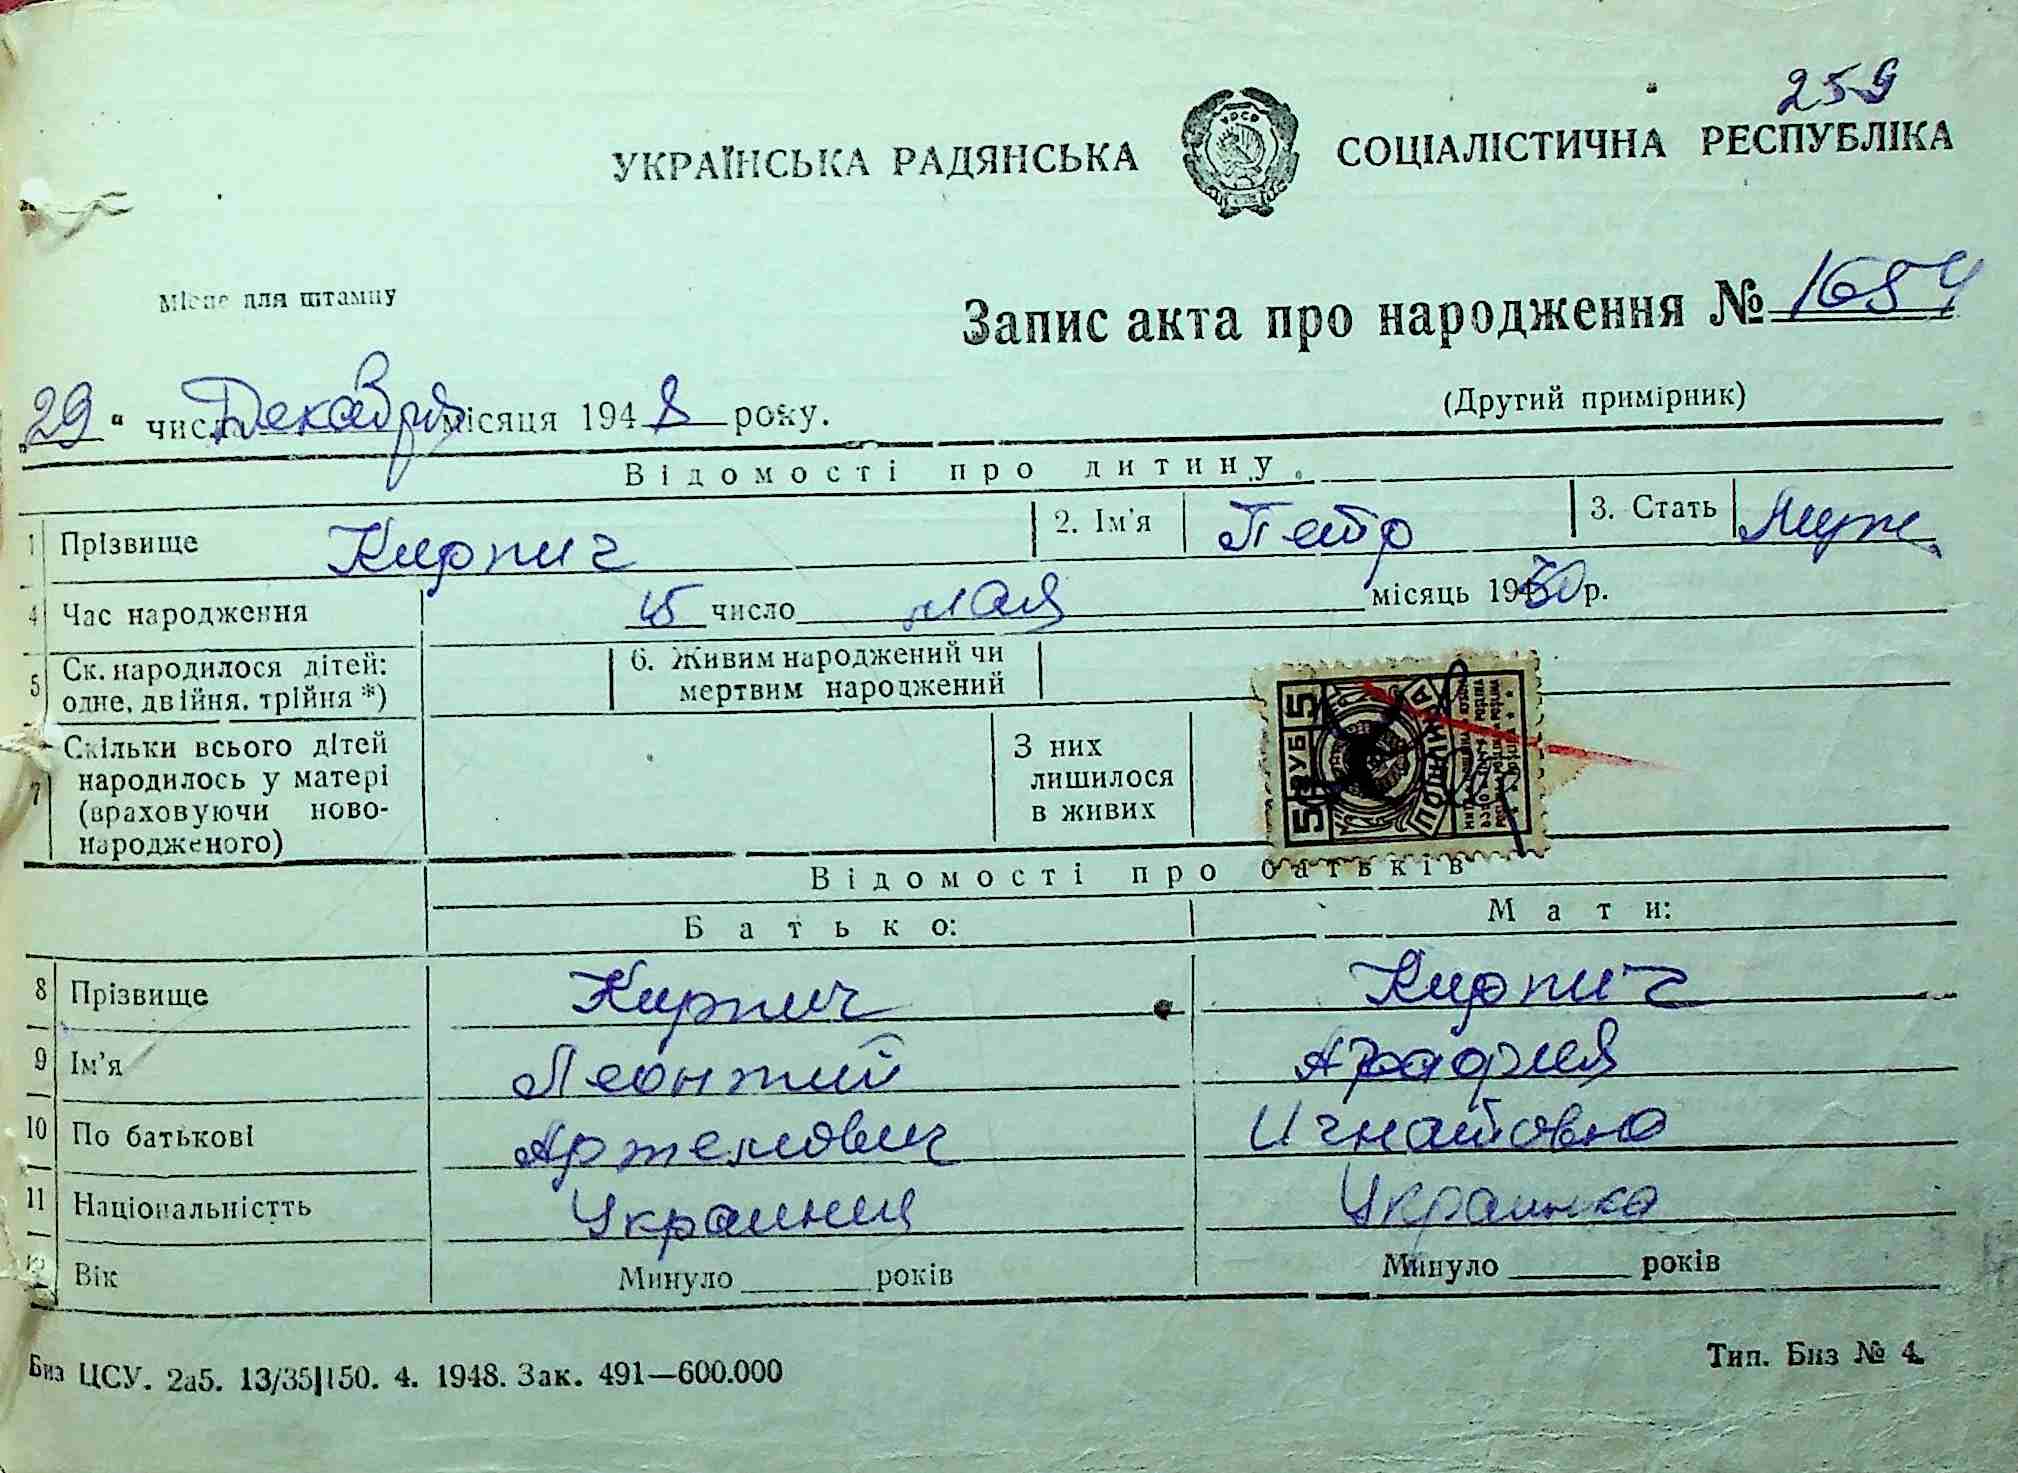 259
УКРАЇНСЬКА РАДЯНСЬКА СОЦІАЛІСТИЧНА РЕСПУБЛІКА
Місце для штампу
Запис акта про народження № 1654
(Другий примірник)
„29“ числа Декабря місяця 1948 року.
Відомості про дитину.
1 Прізвище Кирпич 2. Ім'я Петр 3. Стать Муж.
4 Час народження 15 число мая місяць 1930 р.
5 Ск. народилося дітей: одне, двійня, трійня *) 6. Живим народжений чи мертвим народжений
7 Скільки всього дітей народилось у матері (враховуючи ново-народженого) З них лишилося в живих
5 РУБ 5
Відомості про батьків
Батько: Мати:
8 Прізвище Кирпич Кирпич
9 Ім'я Леонтий
10 По батькові Артемович Игнатовна
11 Національністть Украинец Украинка
12 Вік Минуло ____ років Минуло ____ років
Биз ЦСУ. 2а5. 13/35|150. 4. 1948. Зак. 491—600.000 Тип. Биз № 4.